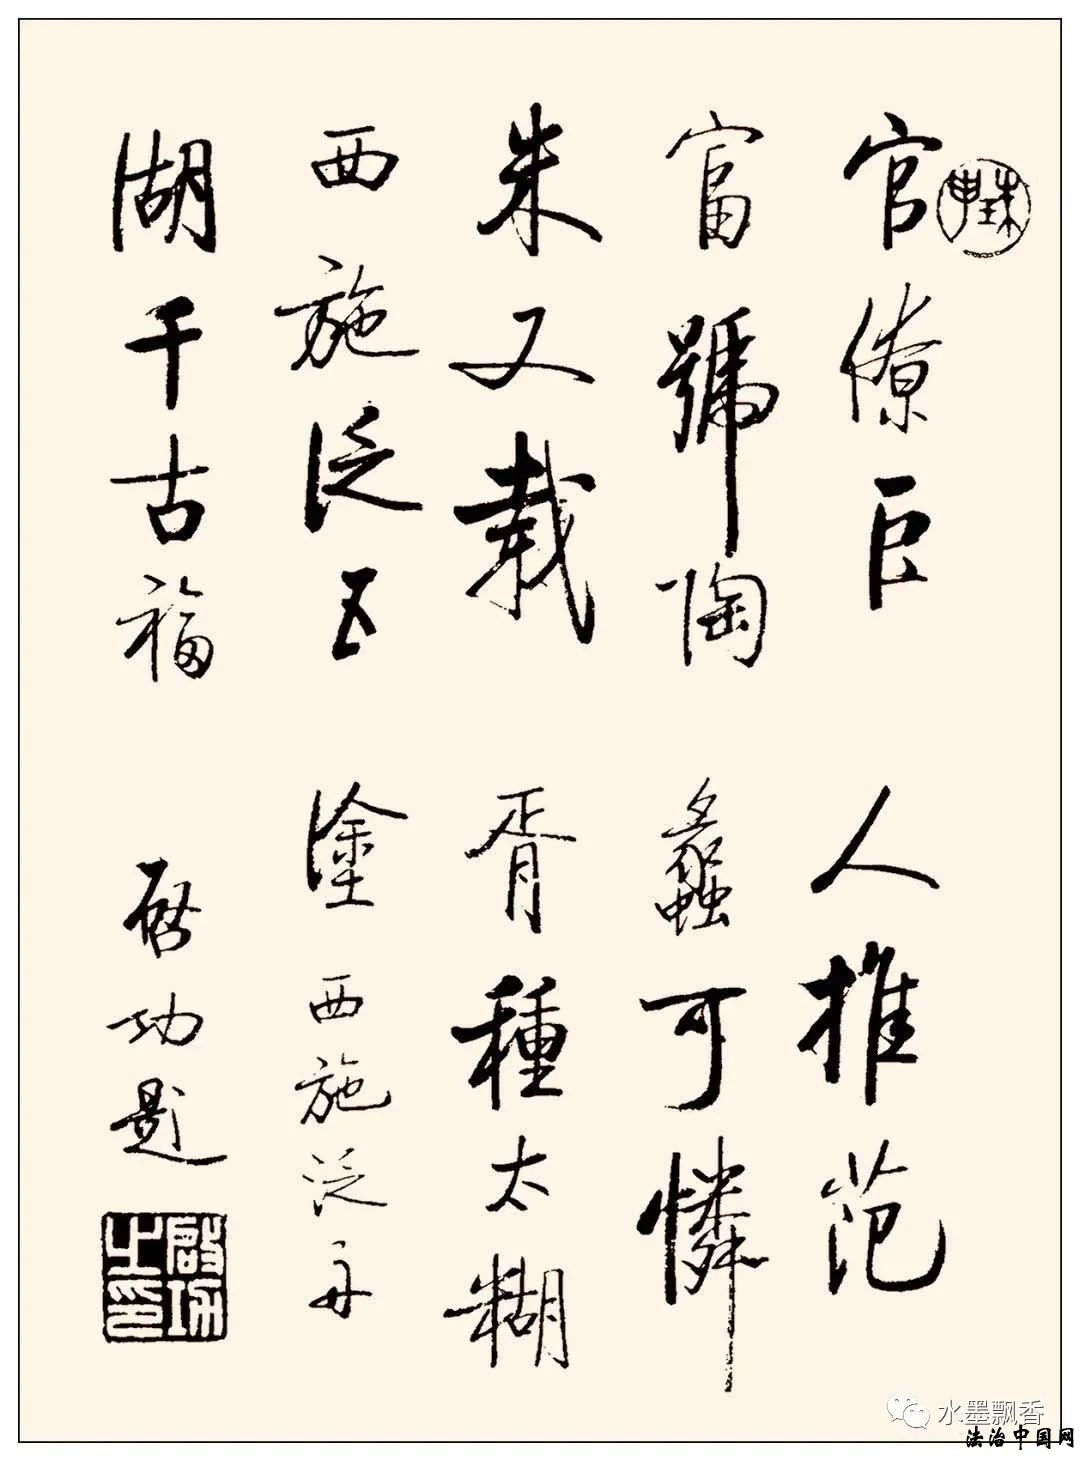 珠申
官僚巨
富號陶
朱又載
西施泛五
湖千古福
人推范
蠡可憐
胥種太糊
塗 西施泛舟
启功題
啟功之印
水墨飘香
法治中国网